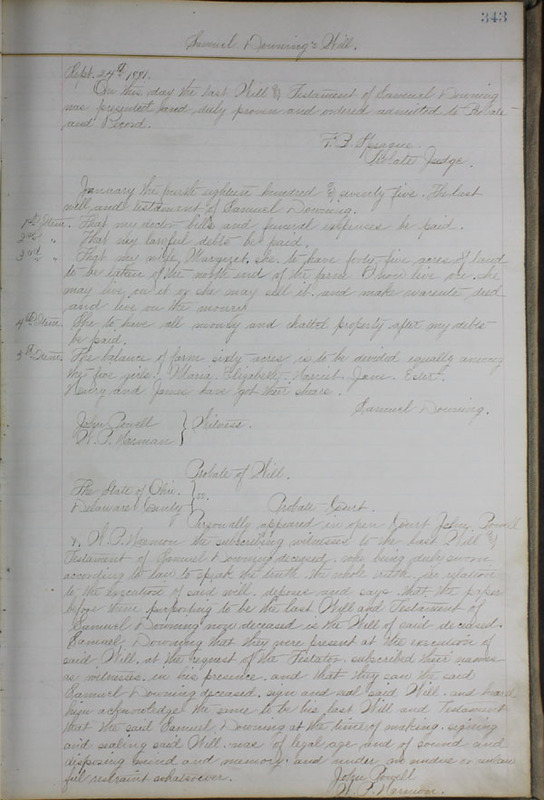 343
Samuel Downing's Will.
Sept. 24th 1891.
On this day the last Will & Testament of Samuel Downing
was present and duly proven and ordered admitted to Probate
and Record.
F. F. Sprague
Probate Judge.
January the fourth eighteen hundred & seventy five. The last
will and testament of Samuel Downing.
1st Item. That my doctor bills and funeral expenses be paid.
2nd " That my lawful debts be paid.
3rd " That my wife, Margaret, she to have forty five acres of land
to be taken of the north end of the farm. She may live on it or she
may live on it or she may sell it, and make warente deed
and live on the money
4th Item. She to have all money and chattel property after my debts
be paid.
5th Item. The balance of farm sixty acres, is to be devided equally among
the five girls. Maria, Elizabeth, Harriet, Jane, Ester.
Henry and James have got their share.
Samuel Downing.
John Powell } Witness.
W. P. Harmon
Probate of Will.
The State of Ohio. } ss.
Delaware County Probate Court.
Personally appeared in open Court John Powell
& W. P. Harmon the subscribing witnesses to the last Will &
Testament of Samuel Downing deceased, who being duly sworn
according to law to speak the truth, the whole truth, in relation
to the execution of said will, depose and says that the paper
before them purporting to be the last Will and Testament of
Samuel Downing now deceased is the Will of said deceased.
Samuel Downing that they were present at the execution of
said Will, at the request of the Testator, subscribed their names
as witnesses, in his presence, and that they saw the said
Samuel Downing deceased, sign and seal said Will, and heard
him acknowledge the same to be his last Will and Testament
that the said Samuel Downing at the time of making, signing
and sealing said Will, was of legal age and of sound and
disposing mind and memory, and under no undue or unlaw
ful restraint whatsoever. John Powell
W. P. Harmon.